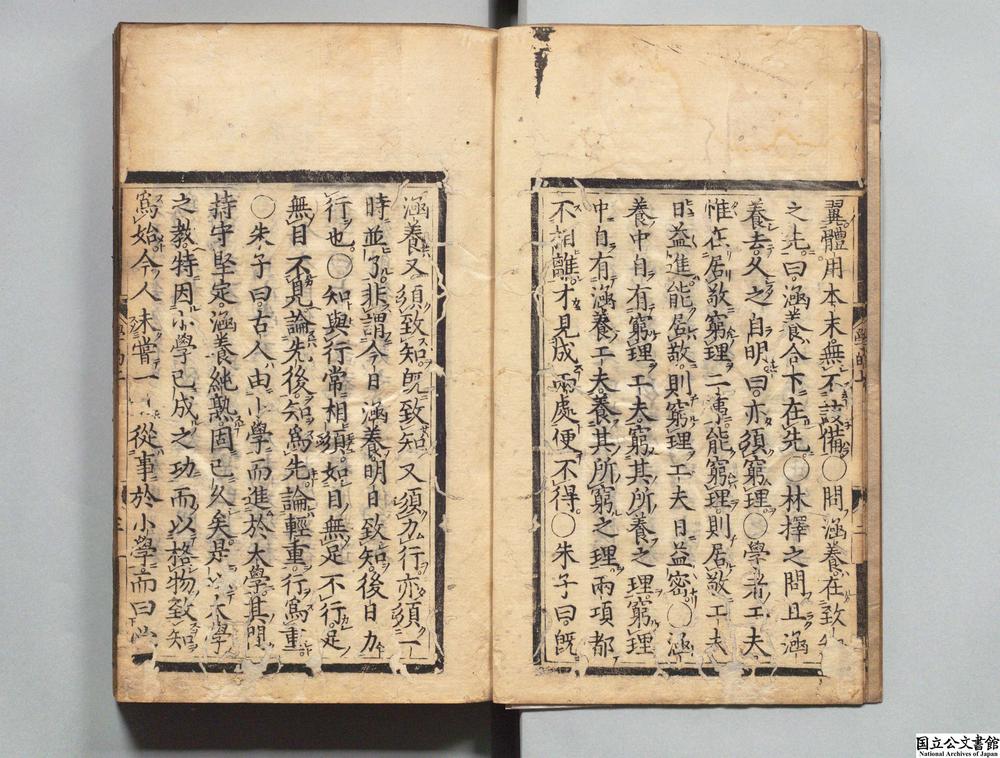 翼體用本末無不該備○問涵養在致知
之先曰涵養合下在先○林擇之問且涵
養去久之自明曰亦須窮理○學者工夫
惟在居敬窮理二事能窮理則居敬工夫
日益進能居敬則窮理工夫日益密○涵
養中自有窮理工夫窮其所養之理窮理
中自有涵養工夫養其所窮之理兩項都
不相離才見成兩處便不得○朱子曰旣
涵養又須致知旣致知又須力行亦須一
時並了非謂今日涵養明日致知後日力
行也○知與行常相須如目無足不行足
無目不見論先後知爲先論輕重行爲重
○朱子曰古人由小學而進於大學其間
持守堅定涵養純熟固已久矣是以大學
之敎特因小學已成之功而以格物致知
爲始今人未嘗一 從事於小學而曰必
國立公文書館
National Archives of Japan